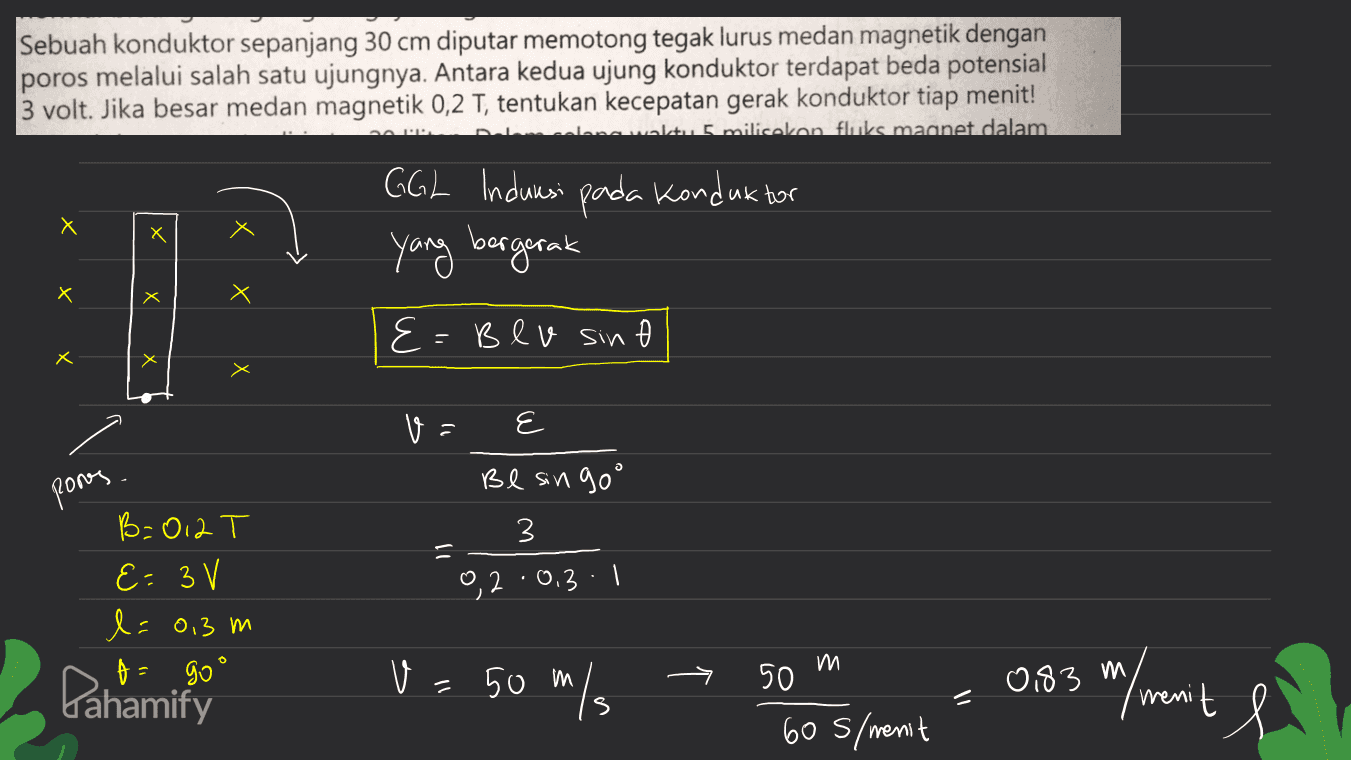 Sebuah konduktor sepanjang 30 cm diputar memotong tegak lurus medan magnetik dengan
poros melalui salah satu ujungnya. Antara kedua ujung konduktor terdapat beda potensial
3 volt. Jika besar medan magnetik 0,2 T, tentukan kecepatan gerak konduktor tiap menit!
waktu 5 milisekon, fluks magnet dalam
GGL Induksi pada konduktor
yang bergerak
x x x
x x x
x x x
ε = B l v sin θ
poros.
B = 0,2 T
ε = 3 V
l = 0,3 m
θ = 90°
v = ε
Bl sin 90°
= 3
0,2 · 0,3 · 1
v = 50 m/s → 50 m
60 s/menit
= 0,83 m/menit
Pahamify